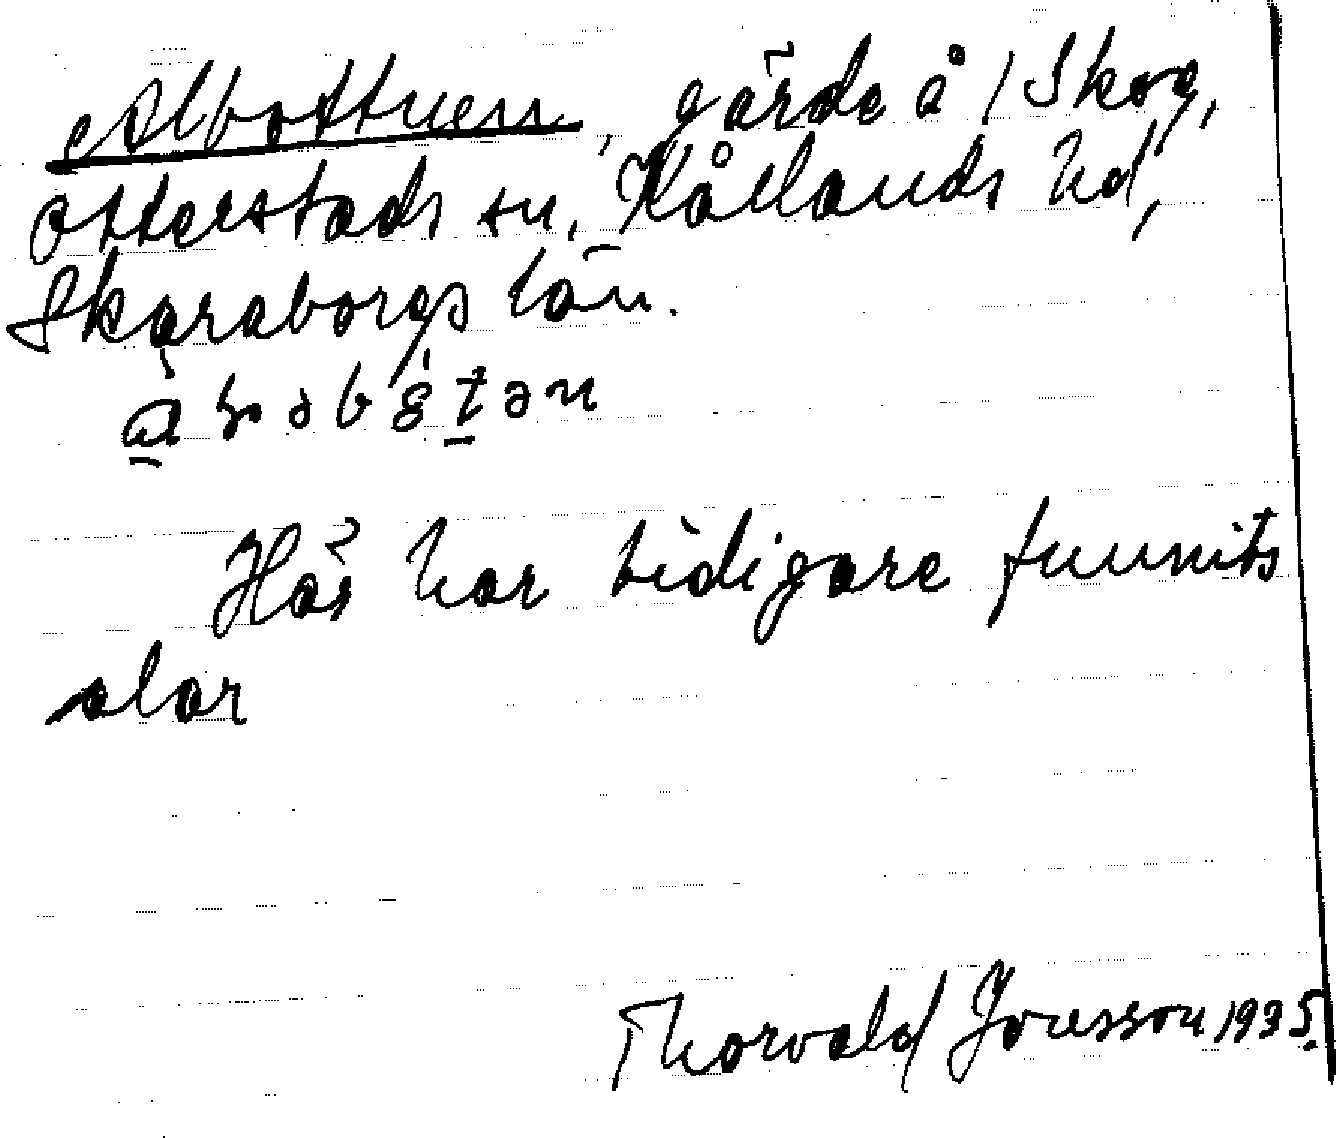 Albottnen, gärde å 1 Skog,
Otterstads sn, Kållands hd,
Skaraborgs län.
Här har tidigare funnits
alar
Thorvald Jonsson 1935.